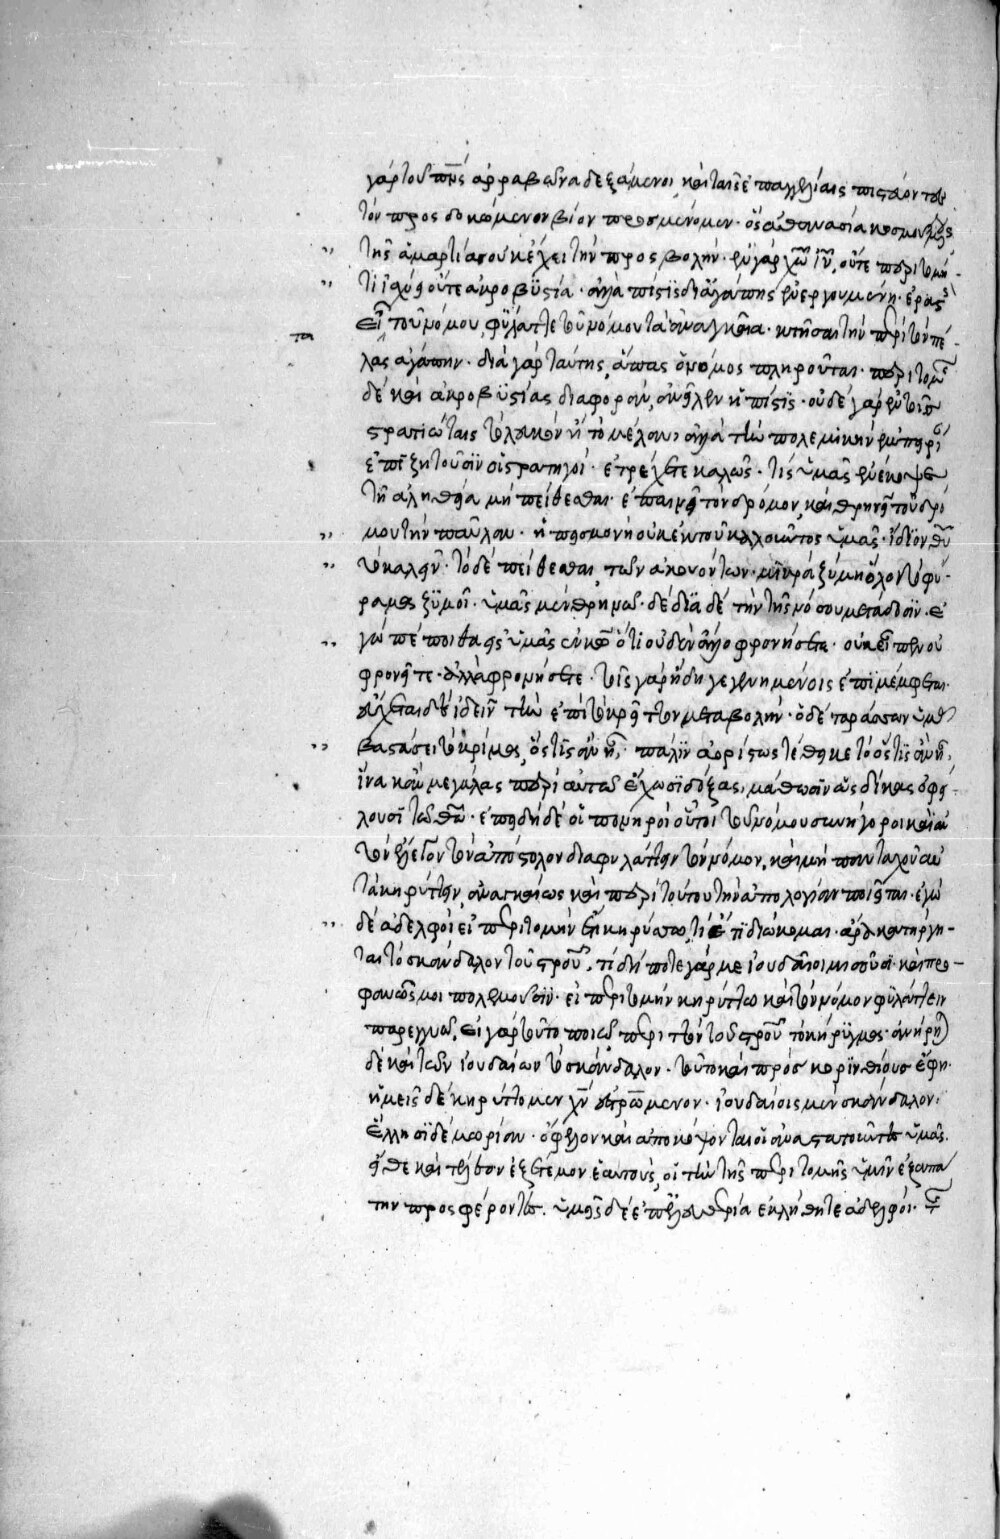 γάρ τοῦ πν̅ς ἀρραβῶνα δεξάμενοι, καὶ ταῖς ἐπαγγελίαις πιστεύοντες
τὸν προσδοκώμενον βίον προσμένομεν· ὃς ἀθανασία κοσμούμενος
τῆς ἁμαρτίας οὐκ ἔχει τὴν προσβολήν· ἐν γὰρ χω̅ ιυ̅, οὔτε περιτομή
τι ἰσχύει οὔτε ἀκροβυστία· ἀλλὰ πίστις δι' ἀγάπης ἐνεργουμένη· ἐραστὴς
εἶ τοῦ νόμου, φύλαττε τοῦ νόμου τὰ ἀναγκαῖα· κτῆσαι τὴν περὶ τὸν πέ
λας ἀγάπην· διὰ γὰρ ταύτης, ἅπας ὁ νόμος πληροῦται· περιτομῆς
δὲ καὶ ἀκροβυστίας διαφοράν, ἀνεῖλεν ἡ πίστις· οὐδὲ γὰρ ἐν τοῖς
στρατιώταις τὸ λευκὸν ἢ τὸ μέλαν, ἀλλὰ τὴν πολεμικὴν ἐμπειρί
ἐπιζητοῦσιν οἱ στρατηγοί· ἐτρέχετε καλῶς· τίς ὑμᾶς ἐνέκοψε
τῇ ἀληθείᾳ μὴ πείθεσθαι· ἐπαινεῖ τὸν δρόμον, καὶ θρηνεῖ τοῦ δρό
μου τὴν παῦλαν· ἡ πεισμονὴ οὐκ ἐκ τοῦ καλοῦντος ὑμᾶς· ἴδιον θυ̅
τὸ καλεῖν· τὸ δὲ πείθεσθαι, τῶν ἀκουόντων· μικρὰ ζύμη ὅλον τὸ φύ
ραμα ζυμοῖ· ὑμᾶς μὲν θρηνῶ· δέδια δὲ τὴν τῆς νόσου μετάδοσιν· ἐ
γὼ πέποιθα εἰς ὑμᾶς ἐν κω̅ ὅτι οὐδὲν ἄλλο φρονήσετε· οὐκ εἶπεν οὐ
φρονεῖτε· ἀλλὰ φρονήσετε· τοῖς γὰρ ἤδη γεγενημένοις ἐπιμέμφεται·
εὔχεται δὲ ἰδεῖν τὴν ἐπὶ τὸ κρεῖττον μεταβολήν· ὁ δὲ ταράσσων ὑμᾶς
βαστάσει τὸ κρίμα, ὅστις ἂν ᾖ· πάλιν ἀορίστως τέθεικε τὸ ὅστις ἂν ᾖ,
ἵνα κἂν μεγάλας περὶ αὐτῶν ἔχωσι δόξας, μάθωσιν ἃς δίκας ὀφεί
λουσι τῷ θω̅· ἐπειδὴ δὲ οἱ πονηροὶ οὗτοι τοῦ νόμου συνήγοροι καὶ αὐ
τὸν ἔλεγον τὸν ἀπόστολον διαφυλάττειν τὸν νόμον, καὶ μὴ πανταχοῦ αὐ
τὰ κηρύττειν, ἀναγκαίως καὶ περὶ τούτου τὴν ἀπολογίαν ποιεῖται· ἐγὼ
δὲ ἀδελφοὶ εἰ περιτομὴν ἔτι κηρύσσω, τί ἔτι διώκομαι· ἄρα κατήργη
ται τὸ σκάνδαλον τοῦ στρου̅· τί δή ποτε γάρ με ἰουδαῖοι μισοῦσι καὶ προ
φανῶς μοι πολεμοῦσιν· εἰ περιτομὴν κηρύττω καὶ τὸν νόμον φυλάττειν
παρεγγυῶ, εἰ γὰρ τοῦτο ποιῶ, περιττὸν τοῦ στρου̅ τὸ κήρυγμα· ἀνῄρηται
δὲ καὶ τῶν ἰουδαίων τὸ σκάνδαλον· τοῦτο καὶ πρὸς κορινθίους ἔφη·
ἡμεῖς δὲ κηρύττομεν χν̅ ἐστρωμένον· ἰουδαίοις μὲν σκάνδαλον,
ἕλλησι δὲ μωρίαν· ὄφελον καὶ ἀποκόψονται οἱ ἀναστατοῦντες ὑμᾶς·
εἴθε καὶ τέλεον ἐξέτεμον ἑαυτούς, οἱ τὴν τῆς περιτομῆς ὑμῖν ἐξαπά
την προσφέροντες. ὑμεῖς δὲ ἐπ' ἐλευθερίᾳ ἐκλήθητε ἀδελφοί·